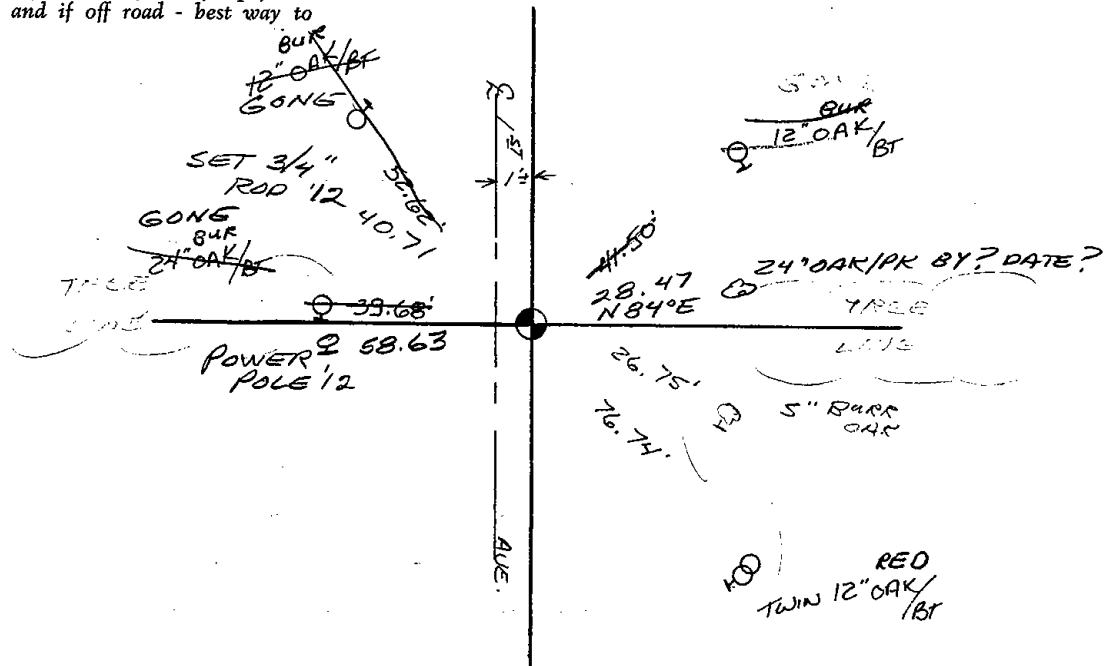 and if off road - best way to
BUR
12" OAK/BT
GONE
SET 3/4"
ROD '12
52.62'
40.71
GONE
BUR
24" OAK/BT
TREE
LINE
39.68'
POWER
POLE '12
58.63
℄ 1ST
1'±
AVE.
GONE
BUR
12" OAK/
BT
41.50'
28.47
N84°E
24" OAK/PK BY? DATE?
TREE
LINE
26.75'
76.74'
5" BURR
OAK
RED
TWIN 12" OAK/
BT